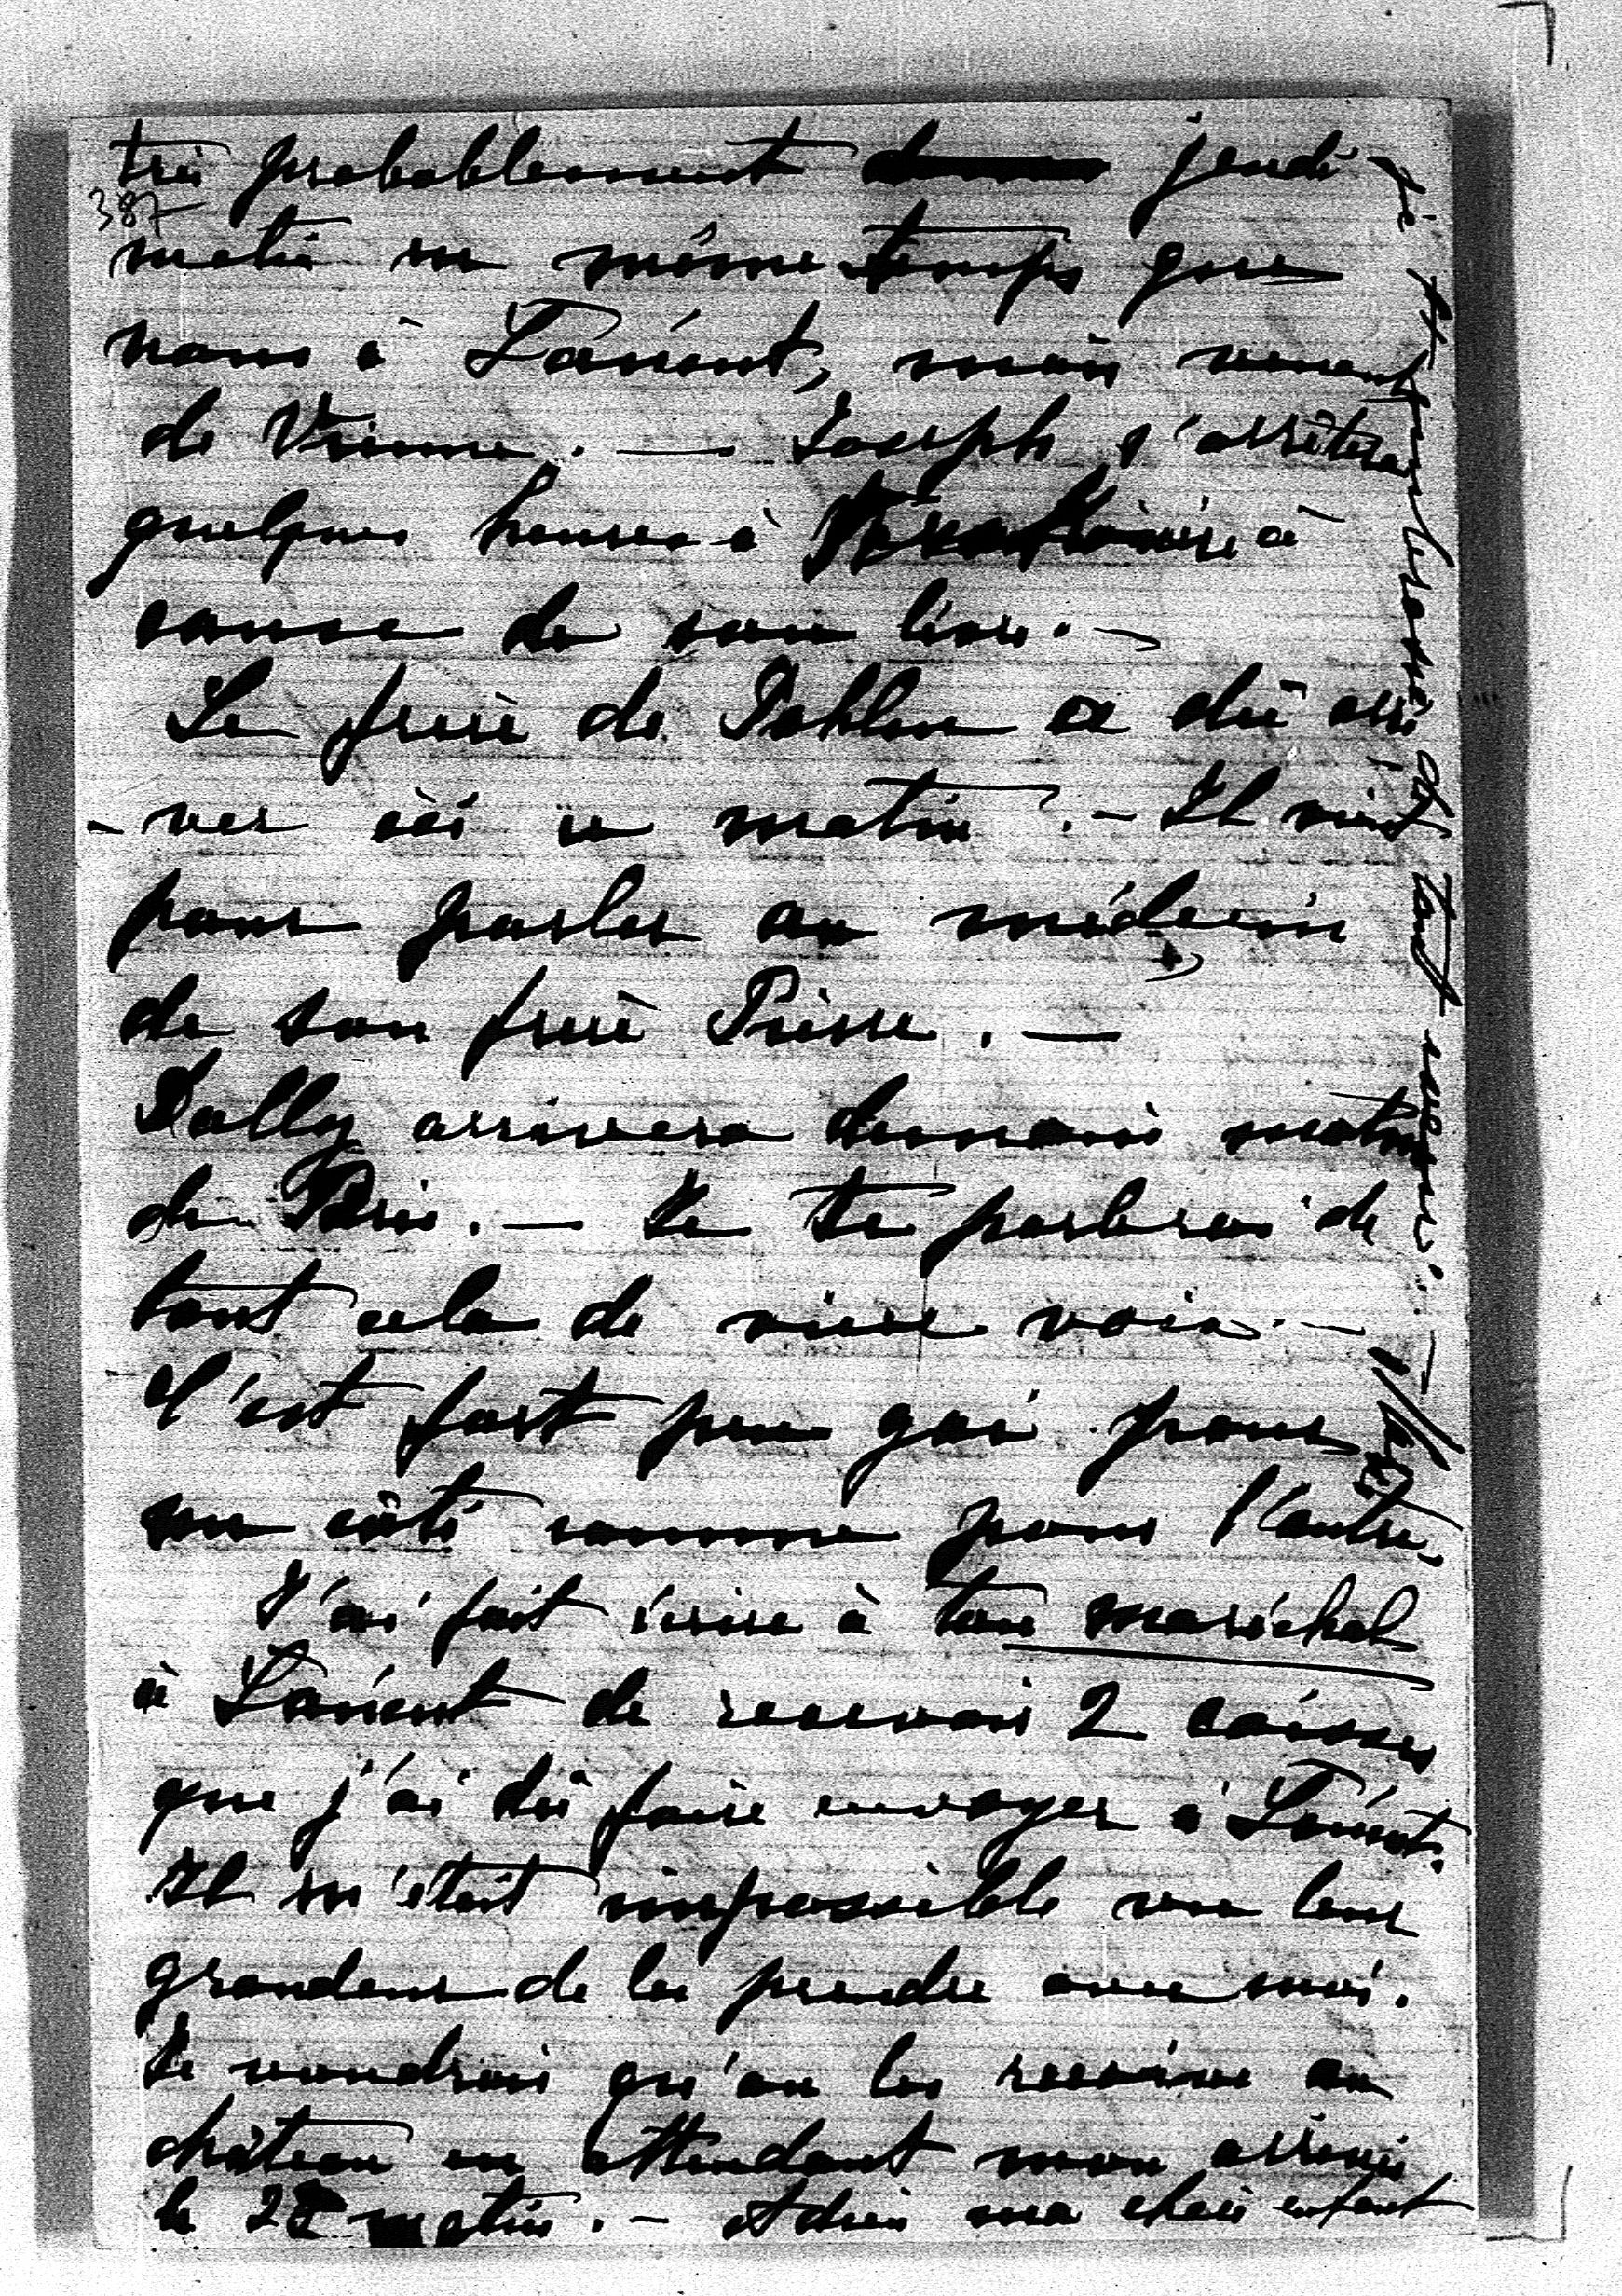 très probablement jeudi
387
matin en même temps que
nous à Łańcut, mais venant
de Vienne. — Joseph s'arrêtera
quelques heures à à
cause de son livre. —
Le frère de a dû arri
-ver ici ce matin. — Il vient
pour parler au médecin
de son frère Pierre. —
Dolly arrivera demain matin
de Paris. — Je te parlerai de
tout cela de vive voix. —
C'est fort peu gai pour
un côté comme pour l'autre.
J'ai fait écrire à ton maréchal
à Łańcut de recevoir 2 caisses
que j'ai dû faire envoyer à Łańcut.
Il m'était impossible vu leur
grandeur de les prendre avec moi.
Je voudrais qu'on les reçoive au
château en attendant mon arrivée
le 22 matin. — Adieu ma chère enfant
je t'embrasse et tant